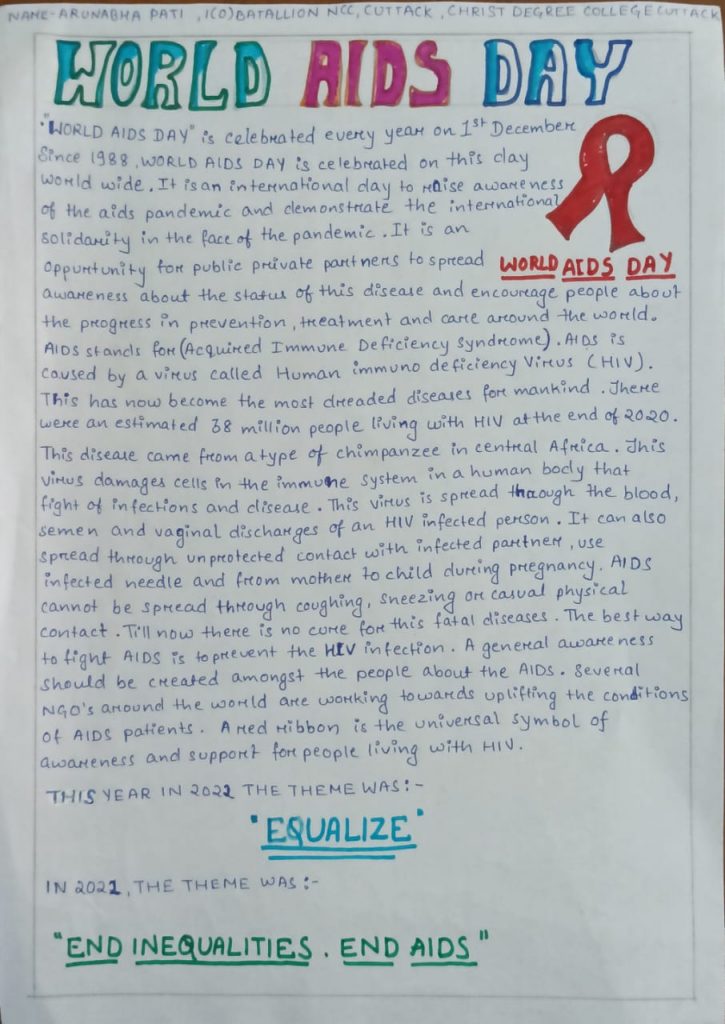 NAME-ARUNABHA PATI , 1(O)BATALLION NCC, CUTTACK , CHRIST DEGREE COLLEGE CUTTACK
WORLD AIDS DAY
"WORLD AIDS DAY" is celebrated every year on 1st December
Since 1988, WORLD AIDS DAY is celebrated on this day
world wide. It is an international day to raise awareness
of the aids pandemic and demonstrate the international
solidarity in the face of the pandemic. It is an
oppurtunity for public private partners to spread
WORLD AIDS DAY
awareness about the status of this disease and encourage people about
the progress in prevention, treatment and care around the world.
AIDS stands for (Acquired Immune Deficiency Syndrome). AIDS is
caused by a virus called Human immuno deficiency Virus (HIV).
This has now become the most dreaded diseases for mankind. There
were an estimated 38 million people living with HIV at the end of 2020.
This disease came from a type of chimpanzee in central Africa. This
virus damages cells in the immune system in a human body that
fight of infections and disease. This virus is spread through the blood,
semen and vaginal discharges of an HIV infected person. It can also
spread through unprotected contact with infected partner, use
infected needle and from mother to child during pregnancy. AIDS
cannot be spread through coughing, sneezing or casual physical
contact. Till now there is no cure for this fatal diseases. The best way
to fight AIDS is to prevent the HIV infection. A general awareness
should be created amongst the people about the AIDS. Several
NGO's around the world are working towards uplifting the conditions
of AIDS patients. A red ribbon is the universal symbol of
awareness and support for people living with HIV.
THIS YEAR IN 2022 THE THEME WAS:-
"EQUALIZE"
IN 2021, THE THEME WAS:-
"END INEQUALITIES. END AIDS"